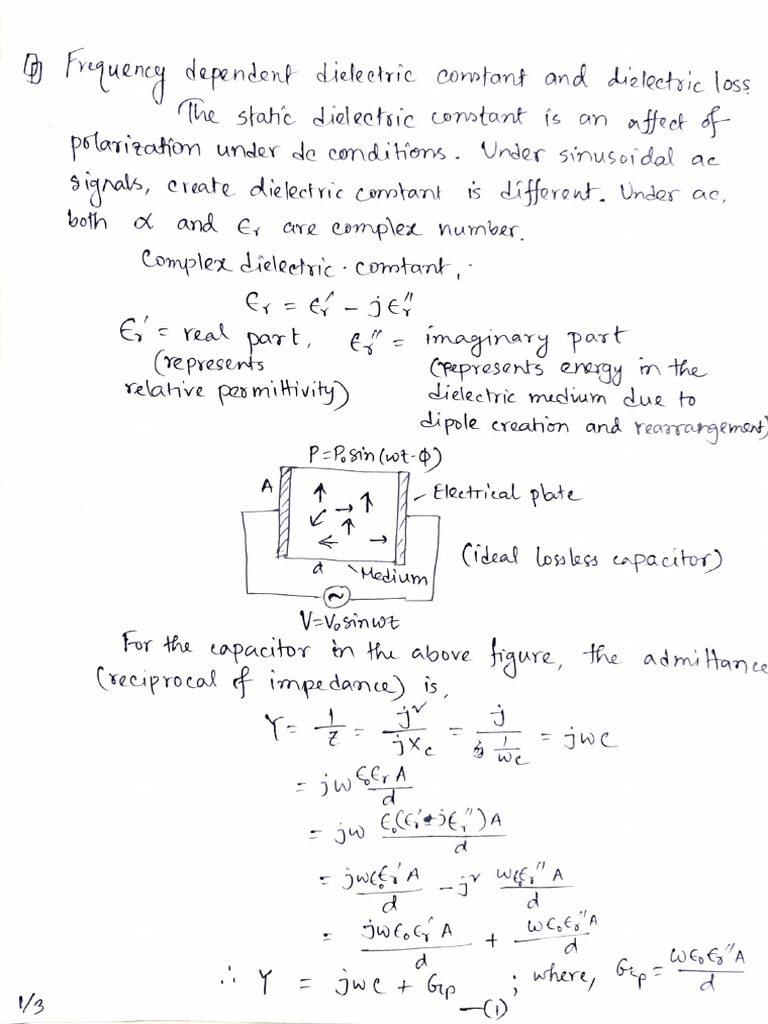 Frequency dependent dielectric constant and dielectric loss
The static dielectric constant is an affect of
polarization under dc conditions. Under sinusoidal ac
signals, create dielectric constant is different. Under ac,
both α and ϵr are complex number.
Complex dielectric constant,
ϵr = ϵr' - jϵr''
ϵr' = real part, ϵr'' = imaginary part
(represents (represents energy in the
relative permittivity) dielectric medium due to
dipole creation and rearrangement)
P=P₀sin(ωt-ϕ)
A
Electrical plate
(ideal lossless capacitor)
d Medium
~
V=V₀sinωt
For the capacitor in the above figure, the admittance
(reciprocal of impedance) is,
Y = 1/Z = j²/jXc = j/(1/ωc) = jωc
= jω ϵ₀ϵrA/d
= jω ϵ₀(ϵr'-jϵr'')A/d
= jωϵ₀ϵr'A/d - j² ωϵ₀ϵr''A/d
= jωϵ₀ϵr'A/d + ωϵ₀ϵr''A/d
∴ Y = jωc + Gp —(1) ; where, Gp = ωϵ₀ϵr''A/d
1/3